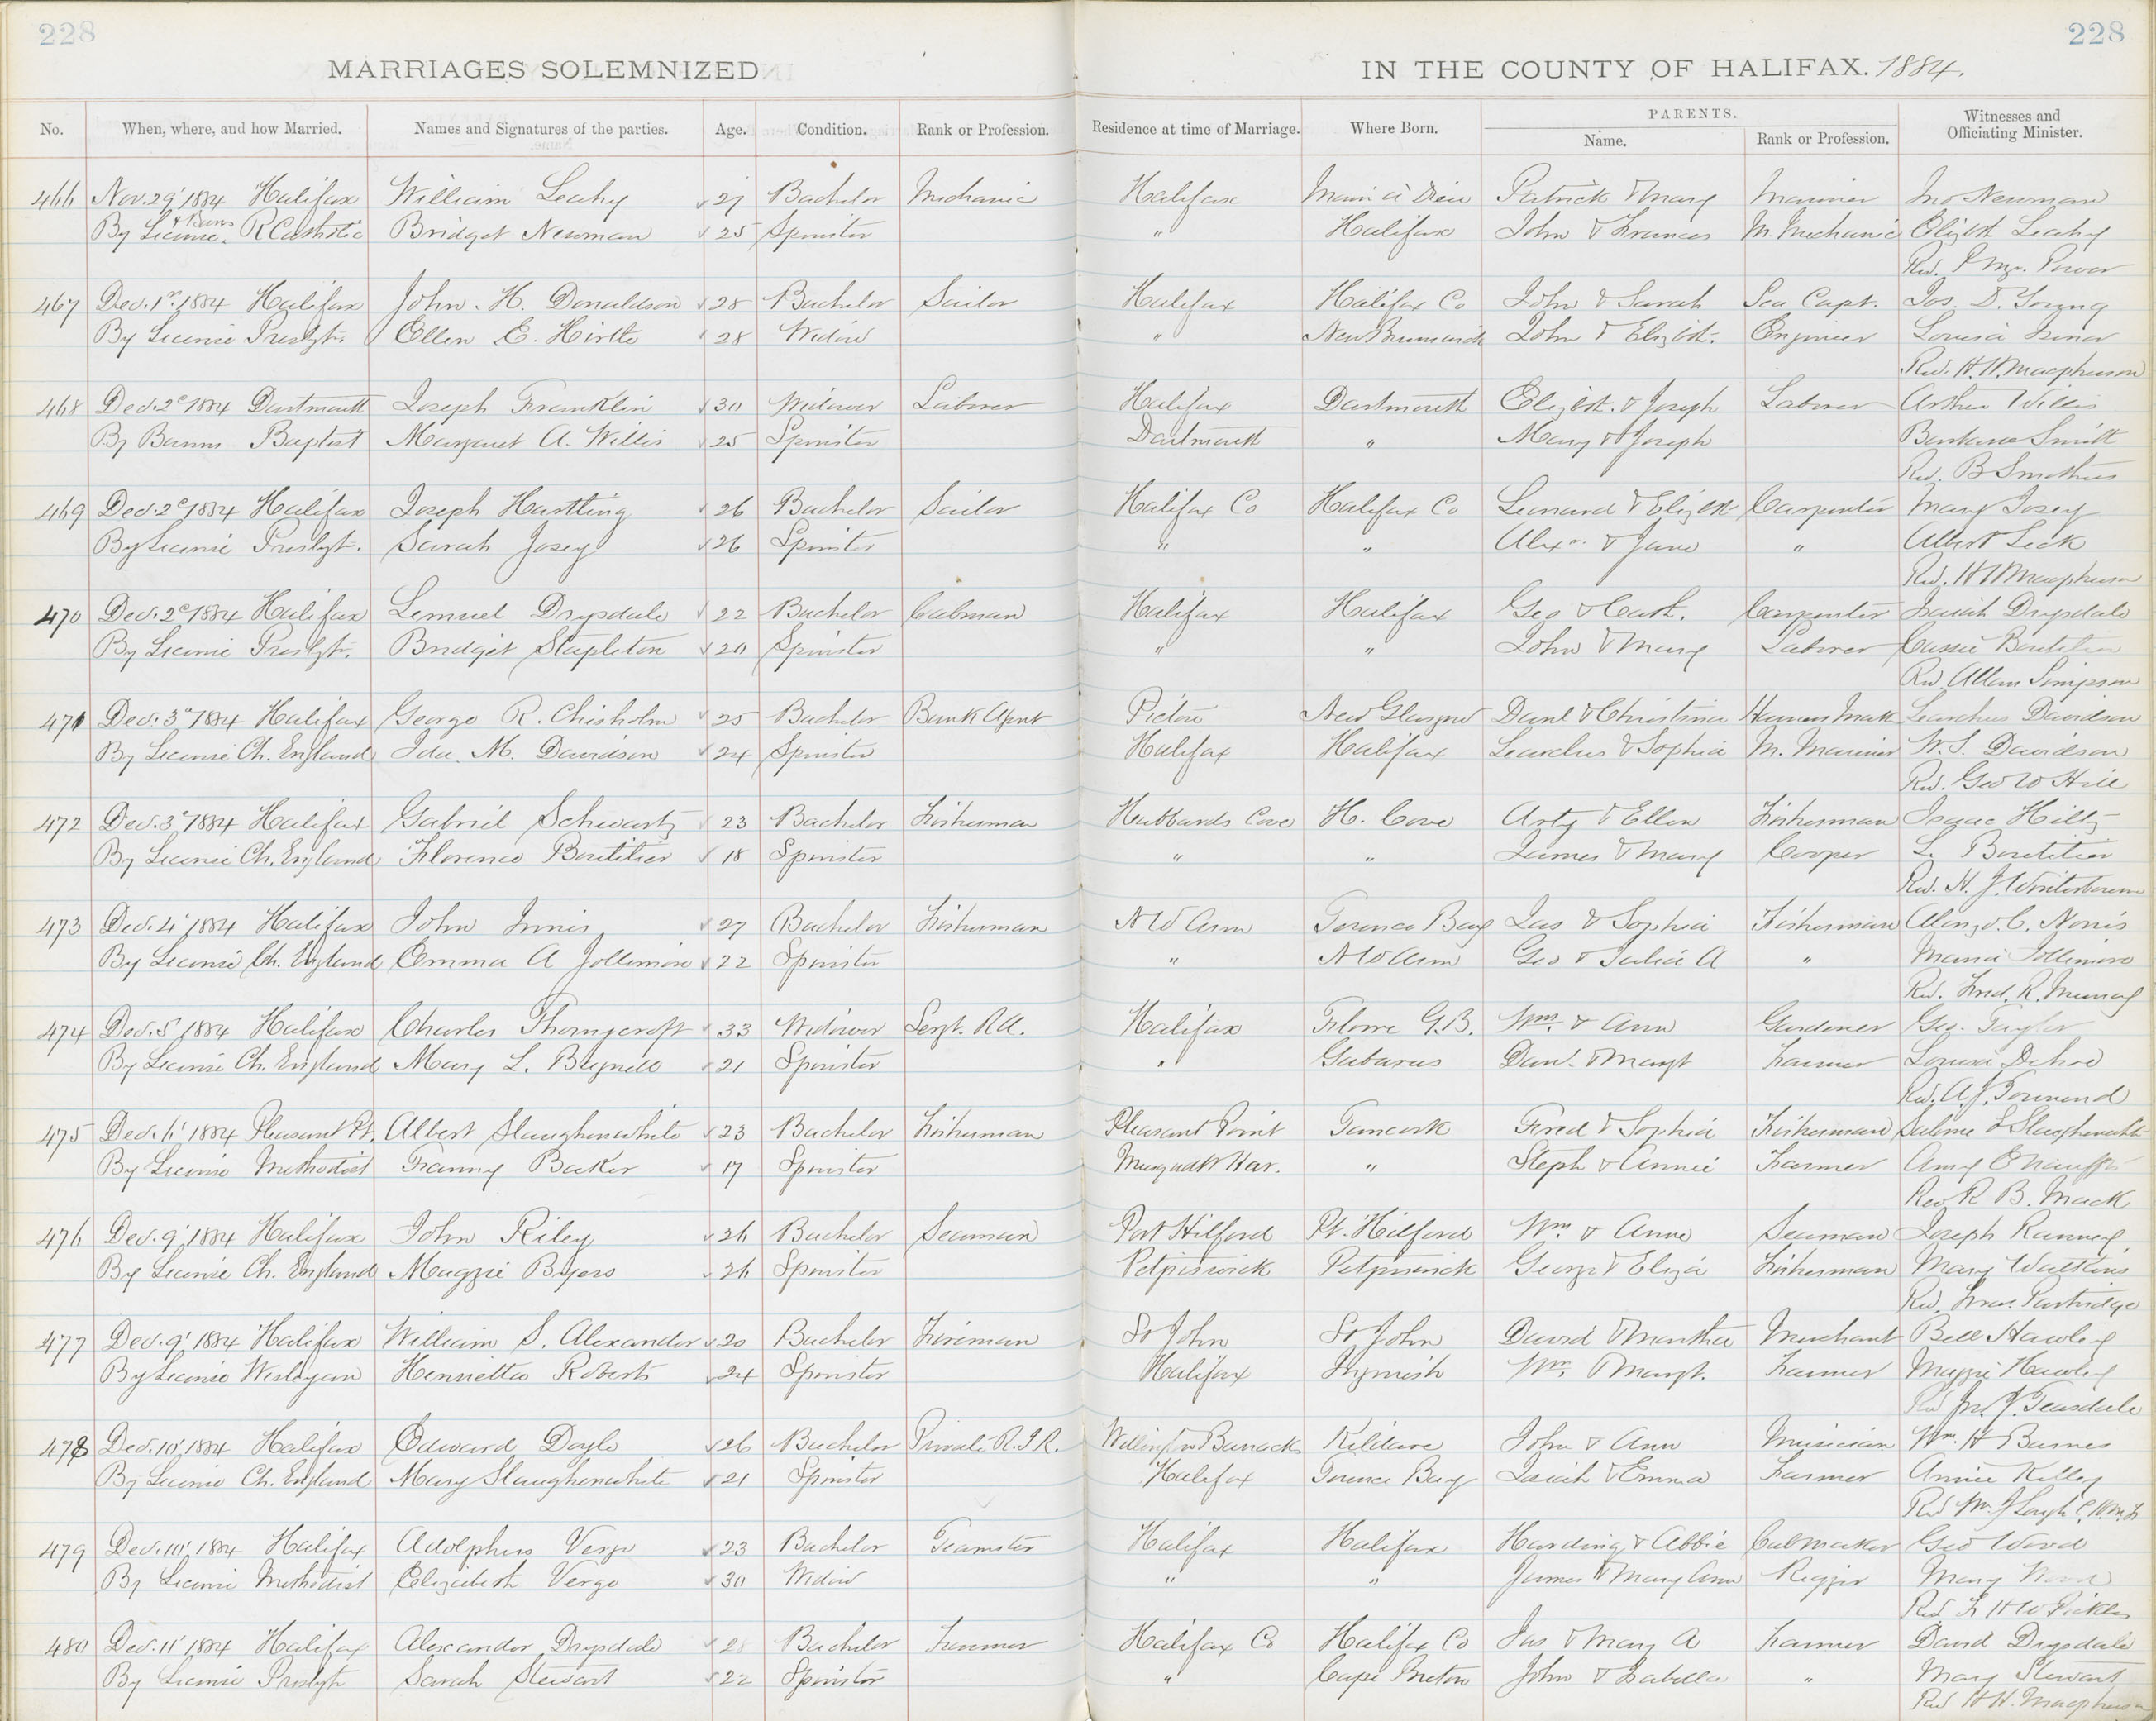 228 228
MARRIAGES SOLEMNIZED IN THE COUNTY OF HALIFAX. 1884.
No. When, where, and how Married. Names and Signatures of the parties. Age. Condition. Rank or Profession. Residence at time of Marriage. Where Born. PARENTS. Name. Rank or Profession. Witnesses and Officiating Minister.
466 Nov. 29' 1884 Halifax William Leahy 27 Bachelor Mechanic Halifax Main à Dieu Patrick & Mary Mariner Jno Newman
By License & Banns R Catholic Bridget Newman 25 Spinster " Halifax John & Frances M. Mechanic Elizbt Leahy
Rev. Power
467 Dec. 1st 1884 Halifax John. H. Donaldson 28 Bachelor Sailor Halifax Halifax Co John & Sarah Sea Capt. Jos. D. Young
By License Presbyt. Ellen E. Hirtle 28 Widow " New Brunswick John & Elizbt. Engineer Louisa
Rev. H. H. Macpherson
468 Dec. 2d 1884 Dartmouth Joseph Franklin 30 Widower Laborer Halifax Dartmouth Elizbt. & Joseph Laborer Arthur Willis
By Banns Baptist Margaret A. Willis 25 Spinster Dartmouth " Mary & Joseph Smith
Rev. B Smothers
469 Dec. 2d 1884 Halifax Joseph Hartling 26 Bachelor Sailor Halifax Co Halifax Co Leonard & Elizbt Carpenter Mary Josey
By License Presbyt. Sarah Josey 26 Spinster " " Alexr. & Jane " Albert Leck
Rev. H H Macpherson
470 Dec. 2d 1884 Halifax Lemuel Drysdale 22 Bachelor Cabman Halifax Halifax Geo & Cath. Carpenter Isaiah Drysdale
By License Presbyt. Bridget Stapleton 20 Spinster " " John & Mary Laborer Cassie Boutilier
Rev. Allan Simpson
471 Dec. 3d 1884 Halifax George R. Chisholm 25 Bachelor Bank Agent Pictou New Glasgow Danl & Christina Harness Mak Learchus Davidson
By License Ch. England Ida. M. Davidson 24 Spinster Halifax Halifax Learchus & Sophia M. Mariner W. S. Davidson
Rev. Geo W Hill
472 Dec. 3d 1884 Halifax Gabriel Schwartz 23 Bachelor Fisherman Hubbards Cove H. Cove Arty & Ellen Fisherman Isaac Hiltz
By License Ch. England Florence Boutilier 18 Spinster " " James & Mary Cooper L. Boutilier
Rev. H. J. Winterbourne
473 Dec. 4' 1884 Halifax John Innis 27 Bachelor Fisherman N W Arm Terence Bay Jas & Sophia Fisherman Alonzo. C. Norris
By License Ch. England Emma A Jollimore 22 Spinster " N W Arm Geo & Julia A " Maria Jollimore
Rev. Fred. R. Murray
474 Dec. 5' 1884 Halifax Charles Thornycroft 33 Widower Sergt. R.A. Halifax G.B. Wm. & Ann Gardener Geo. Taylor
By License Ch. England Mary L. Bagnell 21 Spinster " Gabarus Danl. & Margt Farmer Louisa
Rev. A. J. Townend
475 Dec. 6' 1884 Pleasant Pt. Albert Slaughenwhite 23 Bachelor Fisherman Pleasant Point Tancook Fred & Sophia Fisherman Salome L Slaughenwhite
By License Methodist Fanny Baker 17 Spinster Musquodt Har. " Steph & Annie Farmer Amy E
Rev R. B. Mack
476 Dec. 9' 1884 Halifax John Riley 26 Bachelor Seaman Port Hilford Pt. Hilford Wm. & Anne Seaman Joseph
By License Ch. England Maggie Byers 26 Spinster Petpiswick Petpiswick George & Eliza Fisherman Mary Watkins
Rev. Fras. Partridge
477 Dec. 9' 1884 Halifax William S. Alexander 20 Bachelor Fireman St John St John David & Martha Merchant Bell Hawley
By License Wesleyan Henrietta Roberts 24 Spinster Halifax Ingonish Wm. & Margt. Farmer Maggie Hawley
Rev Jno. J. Teasdale
478 Dec. 10' 1884 Halifax Edward Doyle 26 Bachelor Private R.I.R. Wellington Barracks Kildare John & Ann Musician Wm. H Barnes
By License Ch. England Mary Slaughenwhite 21 Spinster Halifax Terence Bay Isaiah & Emma Farmer Annie Kelley
Rev Wm. J
479 Dec. 10' 1884 Halifax Adolphus Verge 23 Bachelor Teamster Halifax Halifax Harding & Abbie Cabmaker Geo Wood
By License Methodist Elizabeth Verge 30 Widow " " James & Mary Ann Rigger Mary Wood
Rev F H W Pickles
480 Dec. 11' 1884 Halifax Alexander Drysdale 28 Bachelor Farmer Halifax Co Halifax Co Jas & Mary A Farmer David Drysdale
By License Presbyt Sarah Stewart 22 Spinster " Cape Breton John & Isabella " Mary Stewart
Rev H H. Macpherson